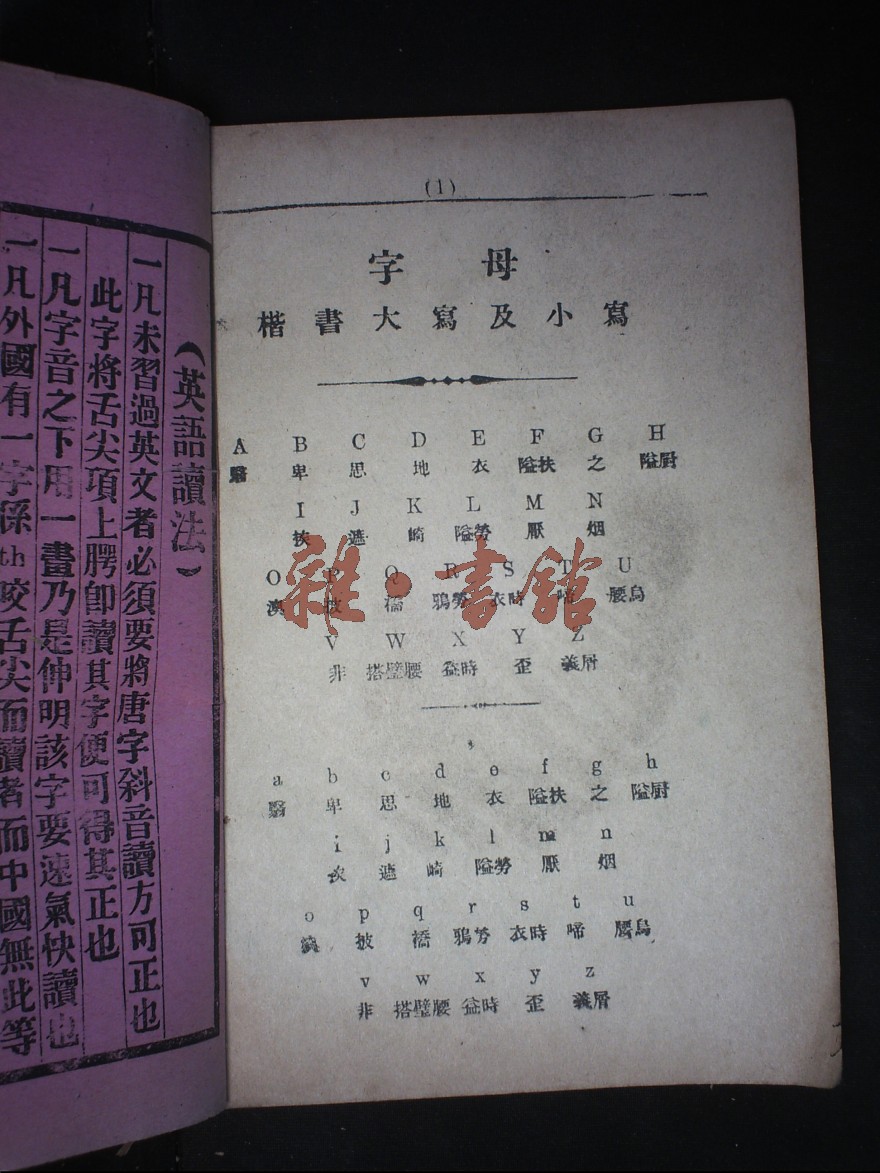 （英語讀法）
一凡未習過英文者必須要將唐字斜音讀方可正也
此字將舌尖項上腭卽讀其字便可得其正也
一凡字音之下用一畫乃是伸明該字要速氣快讀也
一凡外國有一字係th咬舌尖而讀者而中國無此等
(1)
字 母
楷 書 大 寫 及 小 寫
A B C D E F G H
翳 卑 思 地 衣 隘扶 之 隘厨
I J K L M N
挨 遮 崎 隘勞 厭 烟
O P Q R S T U
澳 披 橋 鴉勞 衣時 啼 腰烏
V W X Y Z
非 搭璧腰 益時 歪 義屑
a b c d e f g h
翳 卑 思 地 衣 隘扶 之 隘厨
i j k l m n
挨 遮 崎 隘勞 厭 烟
o p q r s t u
澳 披 橋 鴉勞 衣時 啼 腰烏
v w x y z
非 搭璧腰 益時 歪 義屑
雜·書館